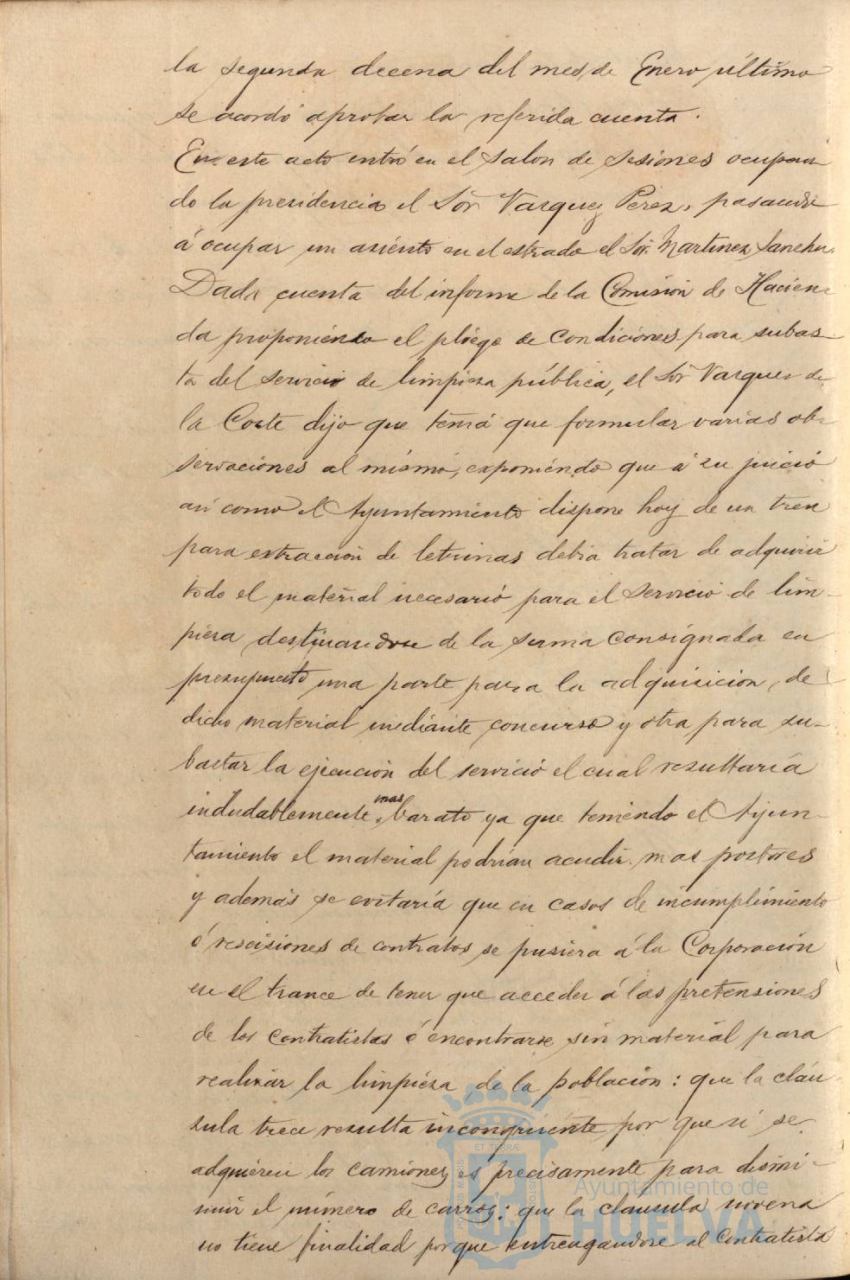 la segunda decena del mes de Enero último
se acordó aprobar la referida cuenta.
En este acto entró en el salon de sesiones ocupan-
do la presidencia el Sor Vazquez Perez, pasando
á ocupar un asiento en el estrado el Sor. Martinez Sanchez.
Dada cuenta del informe de la Comisión de Hacien-
da proponiendo el pliego de condiciones para subas-
ta del servicio de limpieza pública, el Sor Vazquez de
la Corte dijo que tenia que formular varias ob-
servaciones al mismo, exponiendo que á su juicio
asi como el Ayuntamiento dispone hoy de un tren
para extracción de letrinas debia tratar de adquirir
todo el material necesario para el servicio de lim-
pieza destinandose de la suma consignada en
presupuesto una parte para la adquisicion de
dicho material mediante concurso y otra para su-
bastar la ejecución del servicio el cual resultaría
indudablemente mas barato ya que teniendo el Ayun-
tamiento el material podrian acudir mas postores
y además se evitaría que en casos de incumplimiento
ó rescisiones de contratos se pusiera á la Corporación
en el trance de tener que acceder á las pretensiones
de los contratistas ó encontrarse sin material para
realizar la limpieza de la población: que la cláu-
sula trece resulta incongruente por que si se
adquieren los camiones es precisamente para dismi-
nuir el número de carros: que la cláusula novena
no tiene finalidad porque entregandose al contratista
Ayuntamiento de
HUELVA